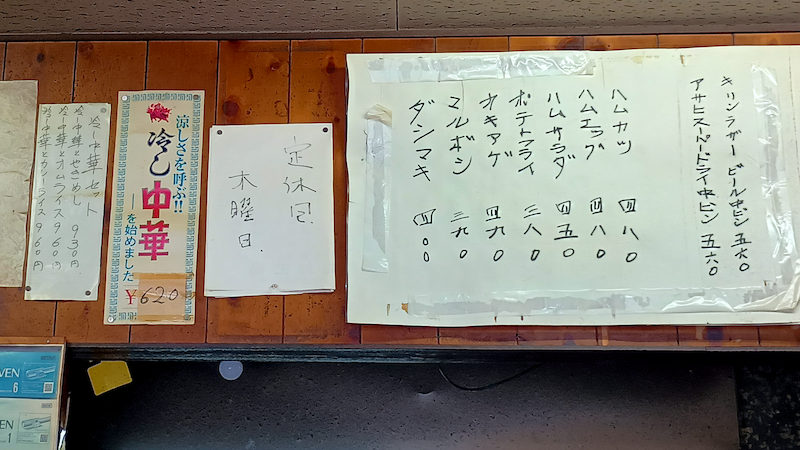 キリンラガービール中ビン 五六〇
アサヒスーパードライ中ビン 五六〇
ハムカツ 四八〇
ハムエッグ 四八〇
ハムサラダ 四五〇
ポテトフライ 三八〇
オキアゲ 四九〇
マルボシ 三九〇
ダシマキ 四〇〇
定休日.
木曜日.
涼しさを呼ぶ!!
冷し中華
を始めました
¥620
冷し中華セット
冷し中華とやきめし 930円
冷し中華とカムライス 960円
冷し中華とカレーライス 960円
VEN
6
EN
1